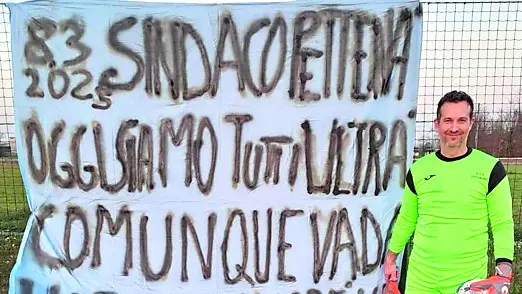 8.3 SINDACO PETTENA'
2025
OGGI SIAMO TUTTI ULTRA'
COMUNQUE VADA